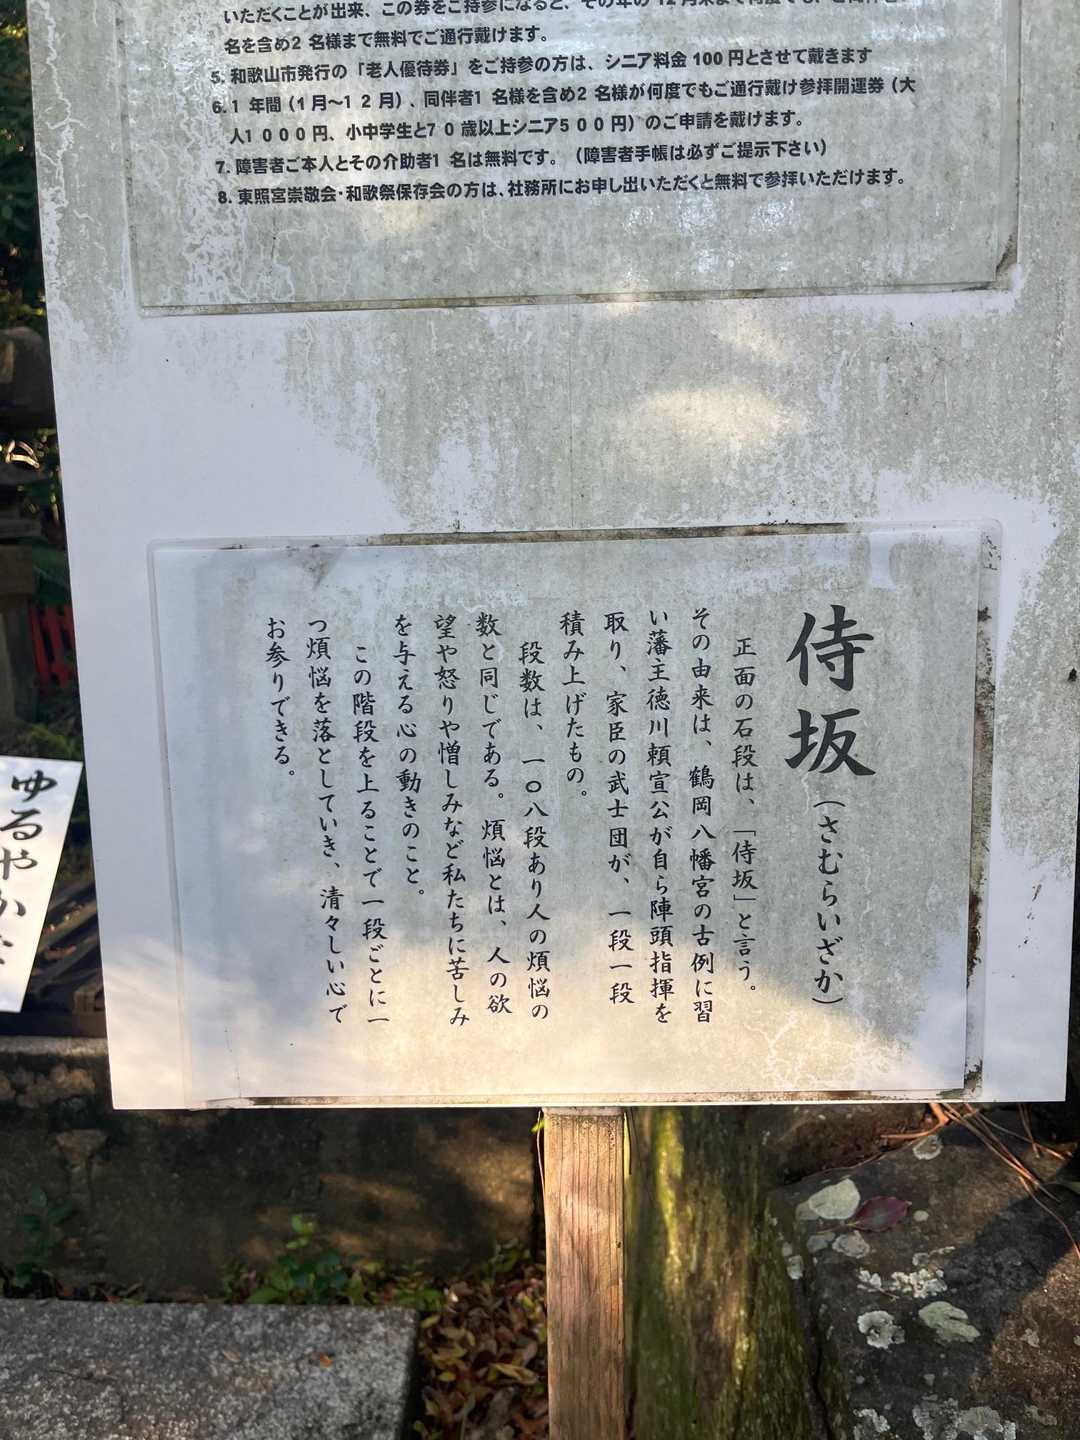 いただくことが出来、この券をご持参になると、その年の12月末まで何度でも、
名を含め2 名様まで無料でご通行戴けます。
5. 和歌山市発行の「老人優待券」をご持参の方は、シニア料金 100 円とさせて戴きます
6. 1 年間（1 月～1 2 月）、同伴者1 名様を含め2 名様が何度でもご通行戴け参拝開運券（大
人1 0 0 0 円、小中学生と7 0 歳以上シニア5 0 0 円）のご申請を戴けます。
7. 障害者ご本人とその介助者1 名は無料です。（障害者手帳は必ずご提示下さい）
8. 東照宮崇敬会・和歌祭保存会の方は、社務所にお申し出いただくと無料で参拝いただけます。
侍坂（さむらいざか）
正面の石段は、「侍坂」と言う。
その由来は、鶴岡八幡宮の古例に習
い藩主徳川頼宣公が自ら陣頭指揮を
取り、家臣の武士団が、一段一段
積み上げたもの。
段数は、一〇八段あり人の煩悩の
数と同じである。煩悩とは、人の欲
望や怒りや憎しみなど私たちに苦しみ
を与える心の動きのこと。
この階段を上ることで一段ごとに一
つ煩悩を落としていき、清々しい心で
お参りできる。
ゆるやかな